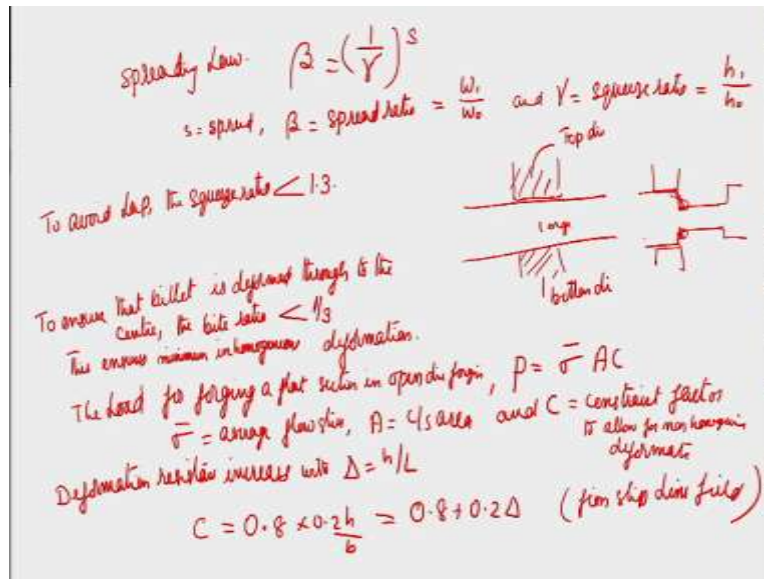 Spreading Law. β = (1/γ)^s
s = spread, β = spread ratio = w₁/w₀ and γ = squeeze ratio = h₁/h₀
Top die
To avoid Lap, the squeeze ratio < 1.3.
bottom die
To ensure that billet is deformed through to the
centre, the bite ratio < 1/3
This ensures minimum inhomogeneous deformation.
The Load for forging a flat section in open die forgin, P = σ̄ AC
σ̄ = average flow stress, A = c/s area and C = constraint factor
to allow for non homogenous
deformate
Deformation resistance increases with Δ = h/L
C = 0.8 × 0.2h/b = 0.8 + 0.2Δ (from slip line field)